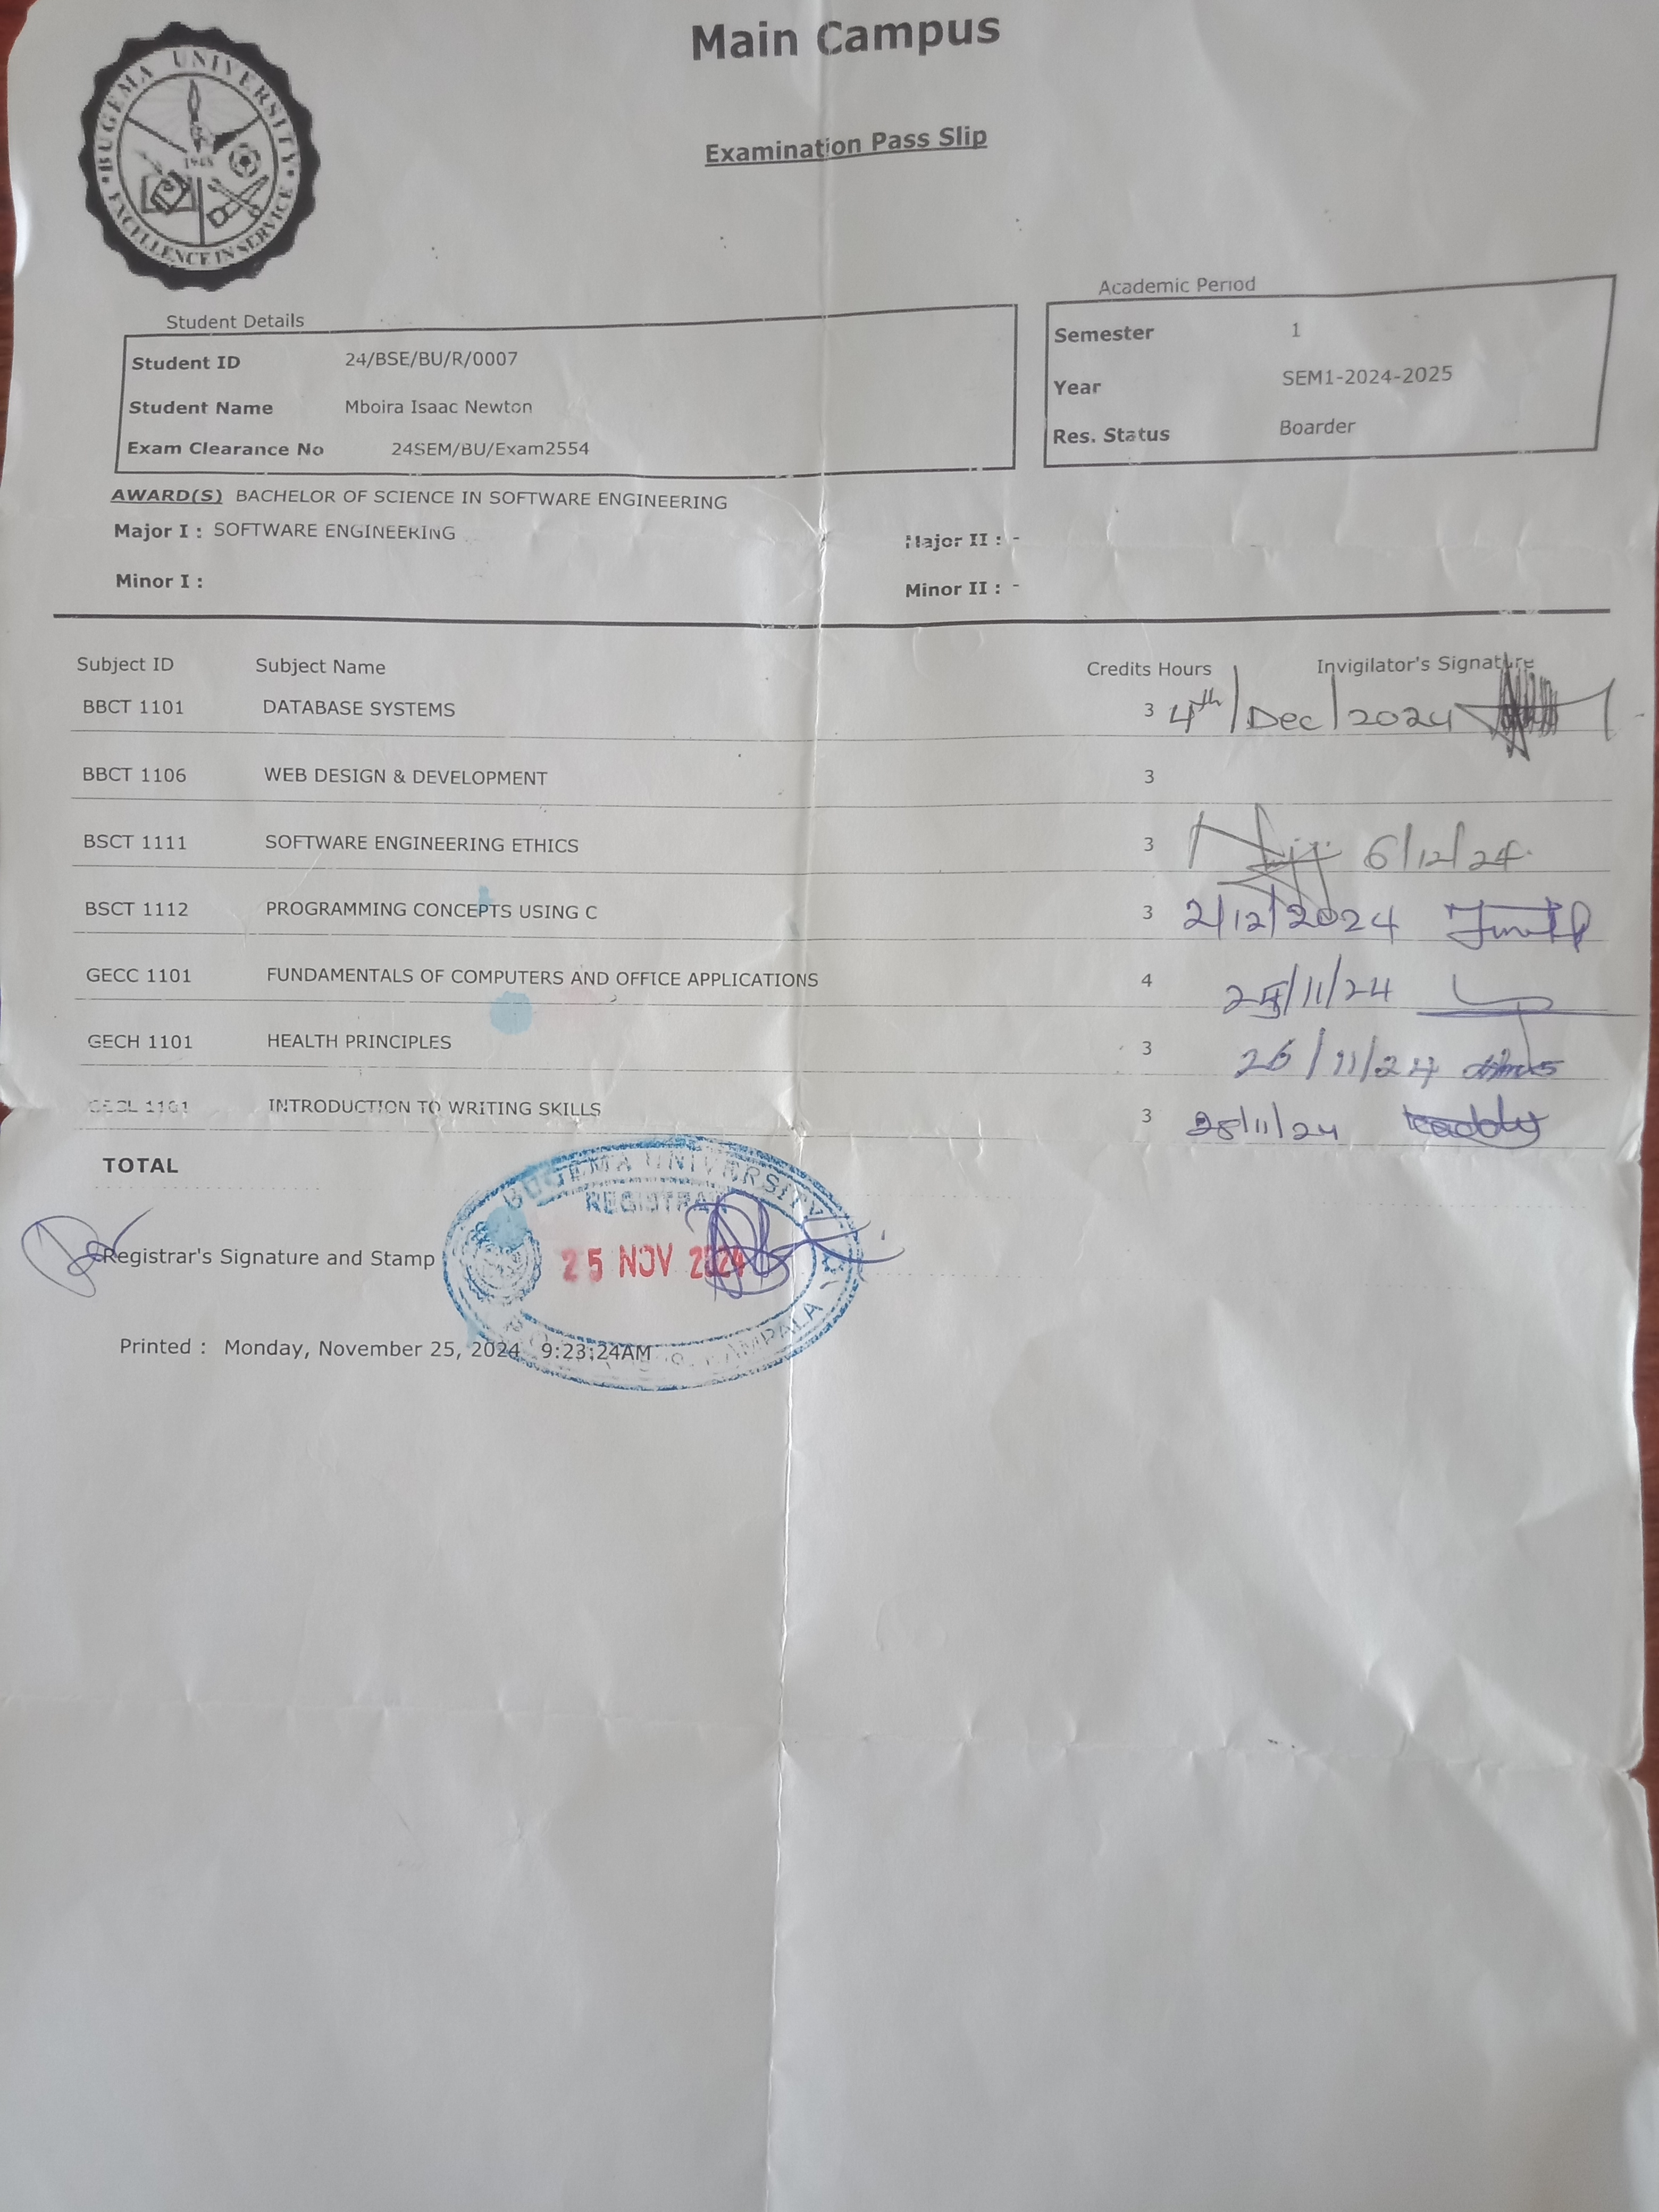 BUGEMA UNIVERSITY
1948
EXCELLENCE IN SERVICE
Main Campus
Examination Pass Slip
Student Details
Student ID 24/BSE/BU/R/0007
Student Name Mboira Isaac Newton
Exam Clearance No 24SEM/BU/Exam2554
Academic Period
Semester 1
Year SEM1-2024-2025
Res. Status Boarder
AWARD(S) BACHELOR OF SCIENCE IN SOFTWARE ENGINEERING
Major I : SOFTWARE ENGINEERING Major II : -
Minor I : Minor II : -
Subject ID Subject Name Credits Hours Invigilator's Signature
BBCT 1101 DATABASE SYSTEMS 3 4th/Dec/2024
BBCT 1106 WEB DESIGN & DEVELOPMENT 3
BSCT 1111 SOFTWARE ENGINEERING ETHICS 3 6/12/24
BSCT 1112 PROGRAMMING CONCEPTS USING C 3 2/12/2024
GECC 1101 FUNDAMENTALS OF COMPUTERS AND OFFICE APPLICATIONS 4 25/11/24
GECH 1101 HEALTH PRINCIPLES 3 26/11/24
GECL 1101 INTRODUCTION TO WRITING SKILLS 3 28/11/24
TOTAL
BUGEMA UNIVERSITY
REGISTRAR
25 NOV 2024
KAMPALA
Registrar's Signature and Stamp
Printed : Monday, November 25, 2024 9:23:24AM